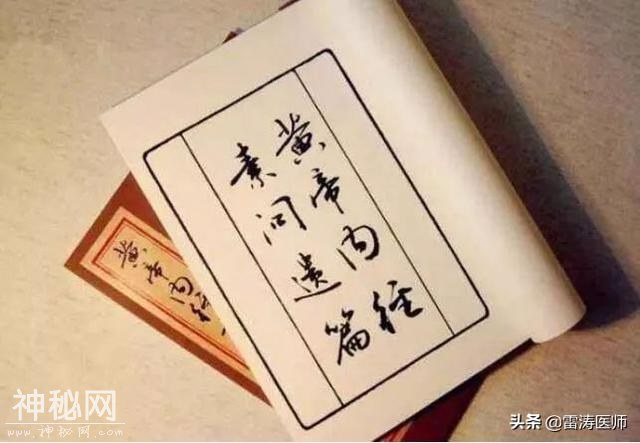 黄帝内经
素问遗篇
黄帝内经
神秘网
WWW.SHENMIW.COM
头条 @雷涛医师